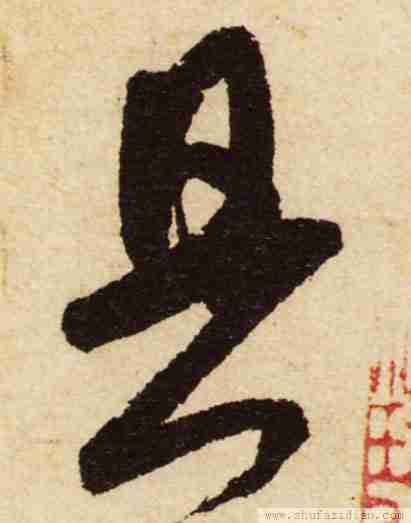 具
www.shufazidian.com